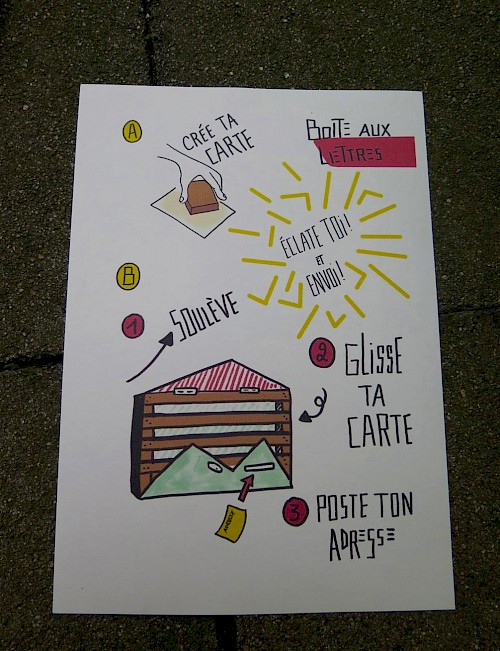 A
CRÉE TA
CARTE
BOITE AUX
LETTRES
ÉCLATE TOI!
ET
ENVOI!
B
1
SOULÈVE
2
GLISSE
TA
CARTE
3
POSTE TON
ADRESSE